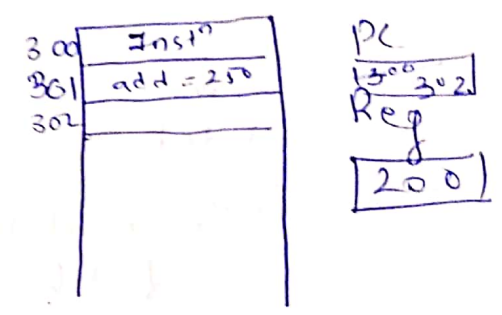 300 Instⁿ
301 add = 250
302
PC
300 302
Reg
200